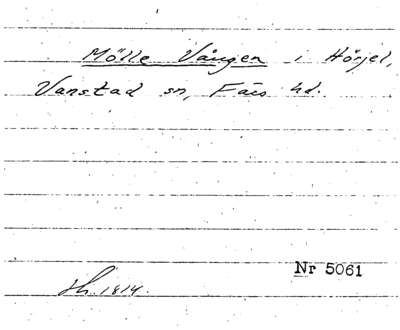 Mölle Vången i Hörjel,
Vanstad sn, Färs hd.
Nr 5061
1814.